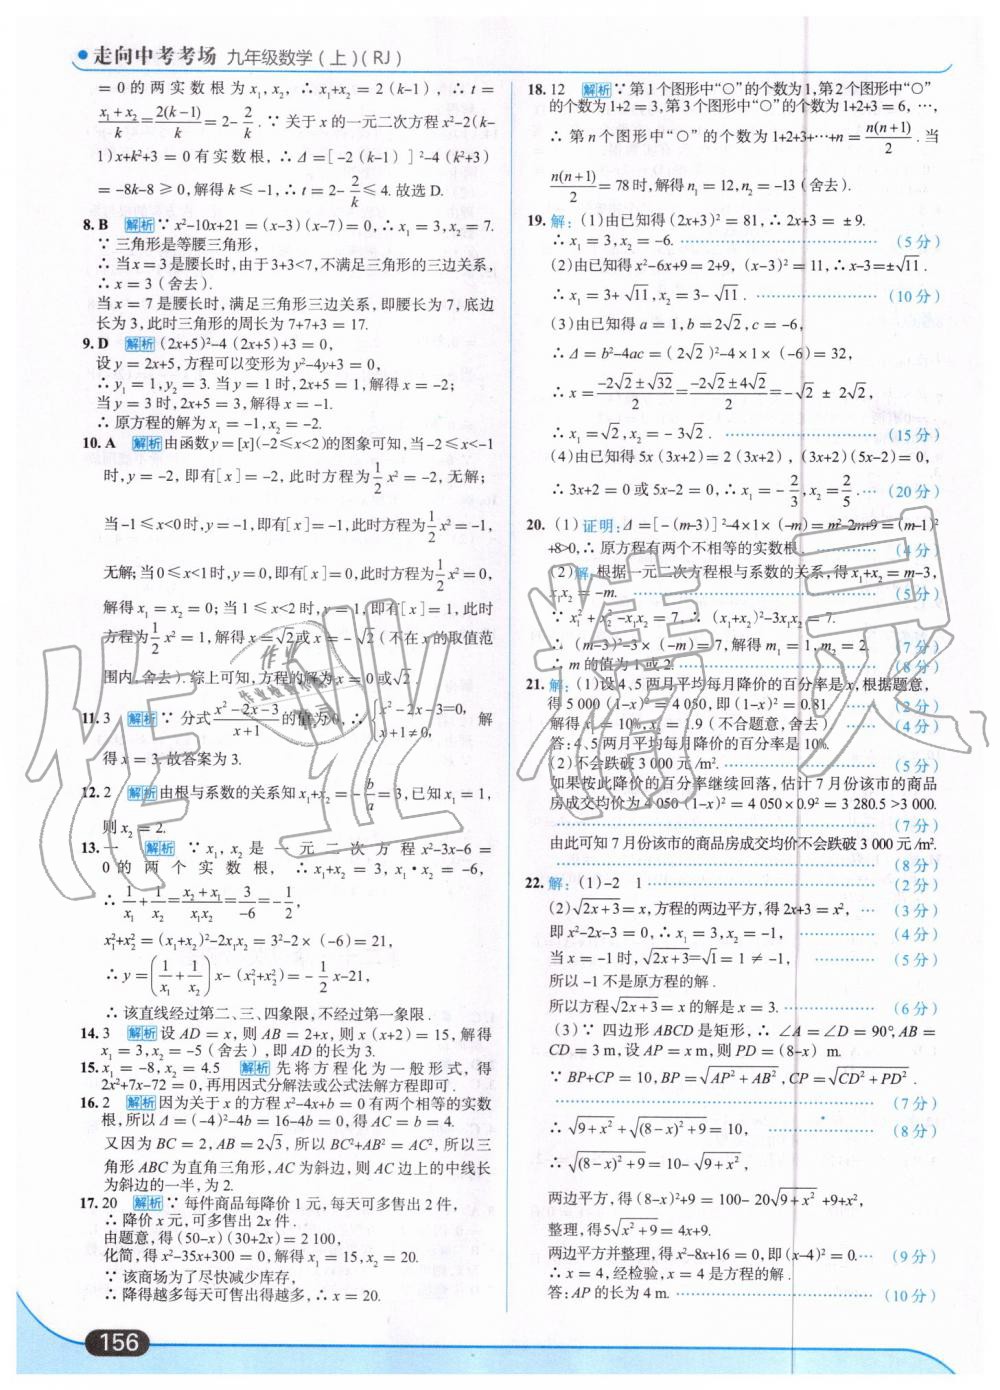 走向中考考场 九年级数学(上)(RJ)
=0的两实数根为x₁,x₂,∴x₁+x₂=2(k-1),∴t=
(x₁+x₂)/k=2(k-1)/k=2-2/k.∵关于x的一元二次方程x²-2(k-
1)x+k²+3=0有实数根,∴Δ=[-2(k-1)]²-4(k²+3)
=-8k-8≥0,解得k≤-1,∴t=2-2/k≤4.故选D.
8.B 解析∵x²-10x+21=(x-3)(x-7)=0,∴x₁=3,x₂=7.
∵三角形是等腰三角形,
∴当x=3是腰长时,由于3+3<7,不满足三角形的三边关系,
∴x=3(舍去).
当x=7是腰长时,满足三角形三边关系,即腰长为7,底边
长为3,此时三角形的周长为7+7+3=17.
9.D 解析(2x+5)²-4(2x+5)+3=0,
设y=2x+5,方程可以变形为y²-4y+3=0,
∴y₁=1,y₂=3.当y=1时,2x+5=1,解得x=-2;
当y=3时,2x+5=3,解得x=-1.
∴原方程的解为x₁=-1,x₂=-2.
10.A 解析由函数y=[x](-2≤x<2)的图象可知,当-2≤x<-1
时,y=-2,即有[x]=-2,此时方程为1/2x²=-2,无解;
当-1≤x<0时,y=-1,即有[x]=-1,此时方程为1/2x²=-1,
无解;当0≤x<1时,y=0,即有[x]=0,此时方程为1/2x²=0,
解得x₁=x₂=0;当1≤x<2时,y=1,即有[x]=1,此时
方程为1/2x²=1,解得x=√2或x=-√2(不在x的取值范
围内,舍去).综上可知,方程的解为x=0或√2.
11.3 解析∵分式(x²-2x-3)/(x+1)的值为0,∴{x²-2x-3=0,x+1≠0,解
得x=3,故答案为3.
12.2 解析由根与系数的关系知x₁+x₂=-b/a=3,已知x₁=1,
则x₂=2.
13.一 解析∵x₁,x₂是一元二次方程x²-3x-6=
0的两个实数根,∴x₁+x₂=3,x₁·x₂=-6,
∴1/x₁+1/x₂=(x₂+x₁)/x₁x₂=3/-6=-1/2,
x₁²+x₂²=(x₁+x₂)²-2x₁x₂=3²-2×(-6)=21,
∴y=(1/x₁+1/x₂)x-(x₁²+x₂²)=-1/2x-21,
∴该直线经过第二、三、四象限,不经过第一象限.
14.3 解析设AD=x,则AB=2+x,则x(x+2)=15,解得
x₁=3,x₂=-5(舍去),即AD的长为3.
15.x₁=-8,x₂=4.5 解析先将方程化为一般形式,得
2x²+7x-72=0,再用因式分解法或公式法解方程即可.
16.2 解析因为关于x的方程x²-4x+b=0有两个相等的实数
根,所以Δ=(-4)²-4b=16-4b=0,得AC=b=4.
又因为BC=2,AB=2√3,所以BC²+AB²=AC²,所以三
角形ABC为直角三角形,AC为斜边,则AC边上的中线长
为斜边的一半,为2.
17.20 解析∵每件商品每降价1元,每天可多售出2件,
∴降价x元,可多售出2x件.
由题意,得(50-x)(30+2x)=2100,
化简,得x²-35x+300=0,解得x₁=15,x₂=20.
∵该商场为了尽快减少库存,
∴降得越多每天可售出得越多,∴x=20.
18.12 解析∵第1个图形中“○”的个数为1,第2个图形中“○”
的个数为1+2=3,第3个图形中“○”的个数为1+2+3=6,…,
∴第n个图形中“○”的个数为1+2+3+…+n=n(n+1)/2.当
n(n+1)/2=78时,解得n₁=12,n₂=-13(舍去).
19.解:(1)由已知得(2x+3)²=81,∴2x+3=±9.
∴x₁=3,x₂=-6.……(5分)
(2)由已知得x²-6x+9=2+9,(x-3)²=11,∴x-3=±√11.
∴x₁=3+√11,x₂=3-√11.……(10分)
(3)由已知得a=1,b=2√2,c=-6,
∴Δ=b²-4ac=(2√2)²-4×1×(-6)=32,
∴x=(-2√2±√32)/2=(-2√2±4√2)/2=-√2±2√2,
∴x₁=√2,x₂=-3√2.……(15分)
(4)由已知得5x(3x+2)=2(3x+2),(3x+2)(5x-2)=0,
∴3x+2=0或5x-2=0,∴x₁=-2/3,x₂=2/5.…(20分)
20.(1)证明:Δ=[-(m-3)]²-4×1×(-m)=m²-2m+9=(m-1)²
+8>0,∴原方程有两个不相等的实数根.……(4分)
(2)解:根据一元二次方程根与系数的关系,得x₁+x₂=m-3,
x₁x₂=-m.……(5分)
∵x₁²+x₂²-x₁x₂=7,∴(x₁+x₂)²-3x₁x₂=7.
∴(m-3)²-3×(-m)=7,解得m₁=1,m₂=2.(7分)
∴m的值为1或2.……(8分)
21.解:(1)设4、5两月平均每月降价的百分率是x,根据题意,
得5 000(1-x)²=4 050,即(1-x)²=0.81.……(2分)
解得x₁=10%,x₂=1.9(不合题意,舍去)……(4分)
答:4、5两月平均每月降价的百分率是10%.
(2)不会跌破3 000元/m².……(5分)
如果按此降价的百分率继续回落,估计7月份该市的商品
房成交均价为4 050(1-x)²=4 050×0.9²=3 280.5>3 000.
……(7分)
由此可知7月份该市的商品房成交均价不会跌破3 000元/m².
……(8分)
22.解:(1)-2 1……(2分)
(2)√(2x+3)=x,方程的两边平方,得2x+3=x²,…(3分)
即x²-2x-3=0,∴x₁=3,x₂=-1,……(4分)
当x=-1时,√(2x+3)=√1=1≠-1,……(5分)
所以-1不是原方程的解.
所以方程√(2x+3)=x的解是x=3.……(6分)
(3)∵四边形ABCD是矩形,∴∠A=∠D=90°,AB=
CD=3 m,设AP=x m,则PD=(8-x) m.
∵BP+CP=10,BP=√(AP²+AB²),CP=√(CD²+PD²).
……(7分)
∴√(9+x²)+√((8-x)²+9)=10,……(8分)
∴√((8-x)²+9)=10-√(9+x²),
两边平方,得(8-x)²+9=100-20√(9+x²)+9+x²,
整理,得5√(x²+9)=4x+9.
两边平方并整理,得x²-8x+16=0,即(x-4)²=0.…(9分)
∴x=4,经检验,x=4是方程的解.
答:AP的长为4 m.……(10分)
156
作业精灵